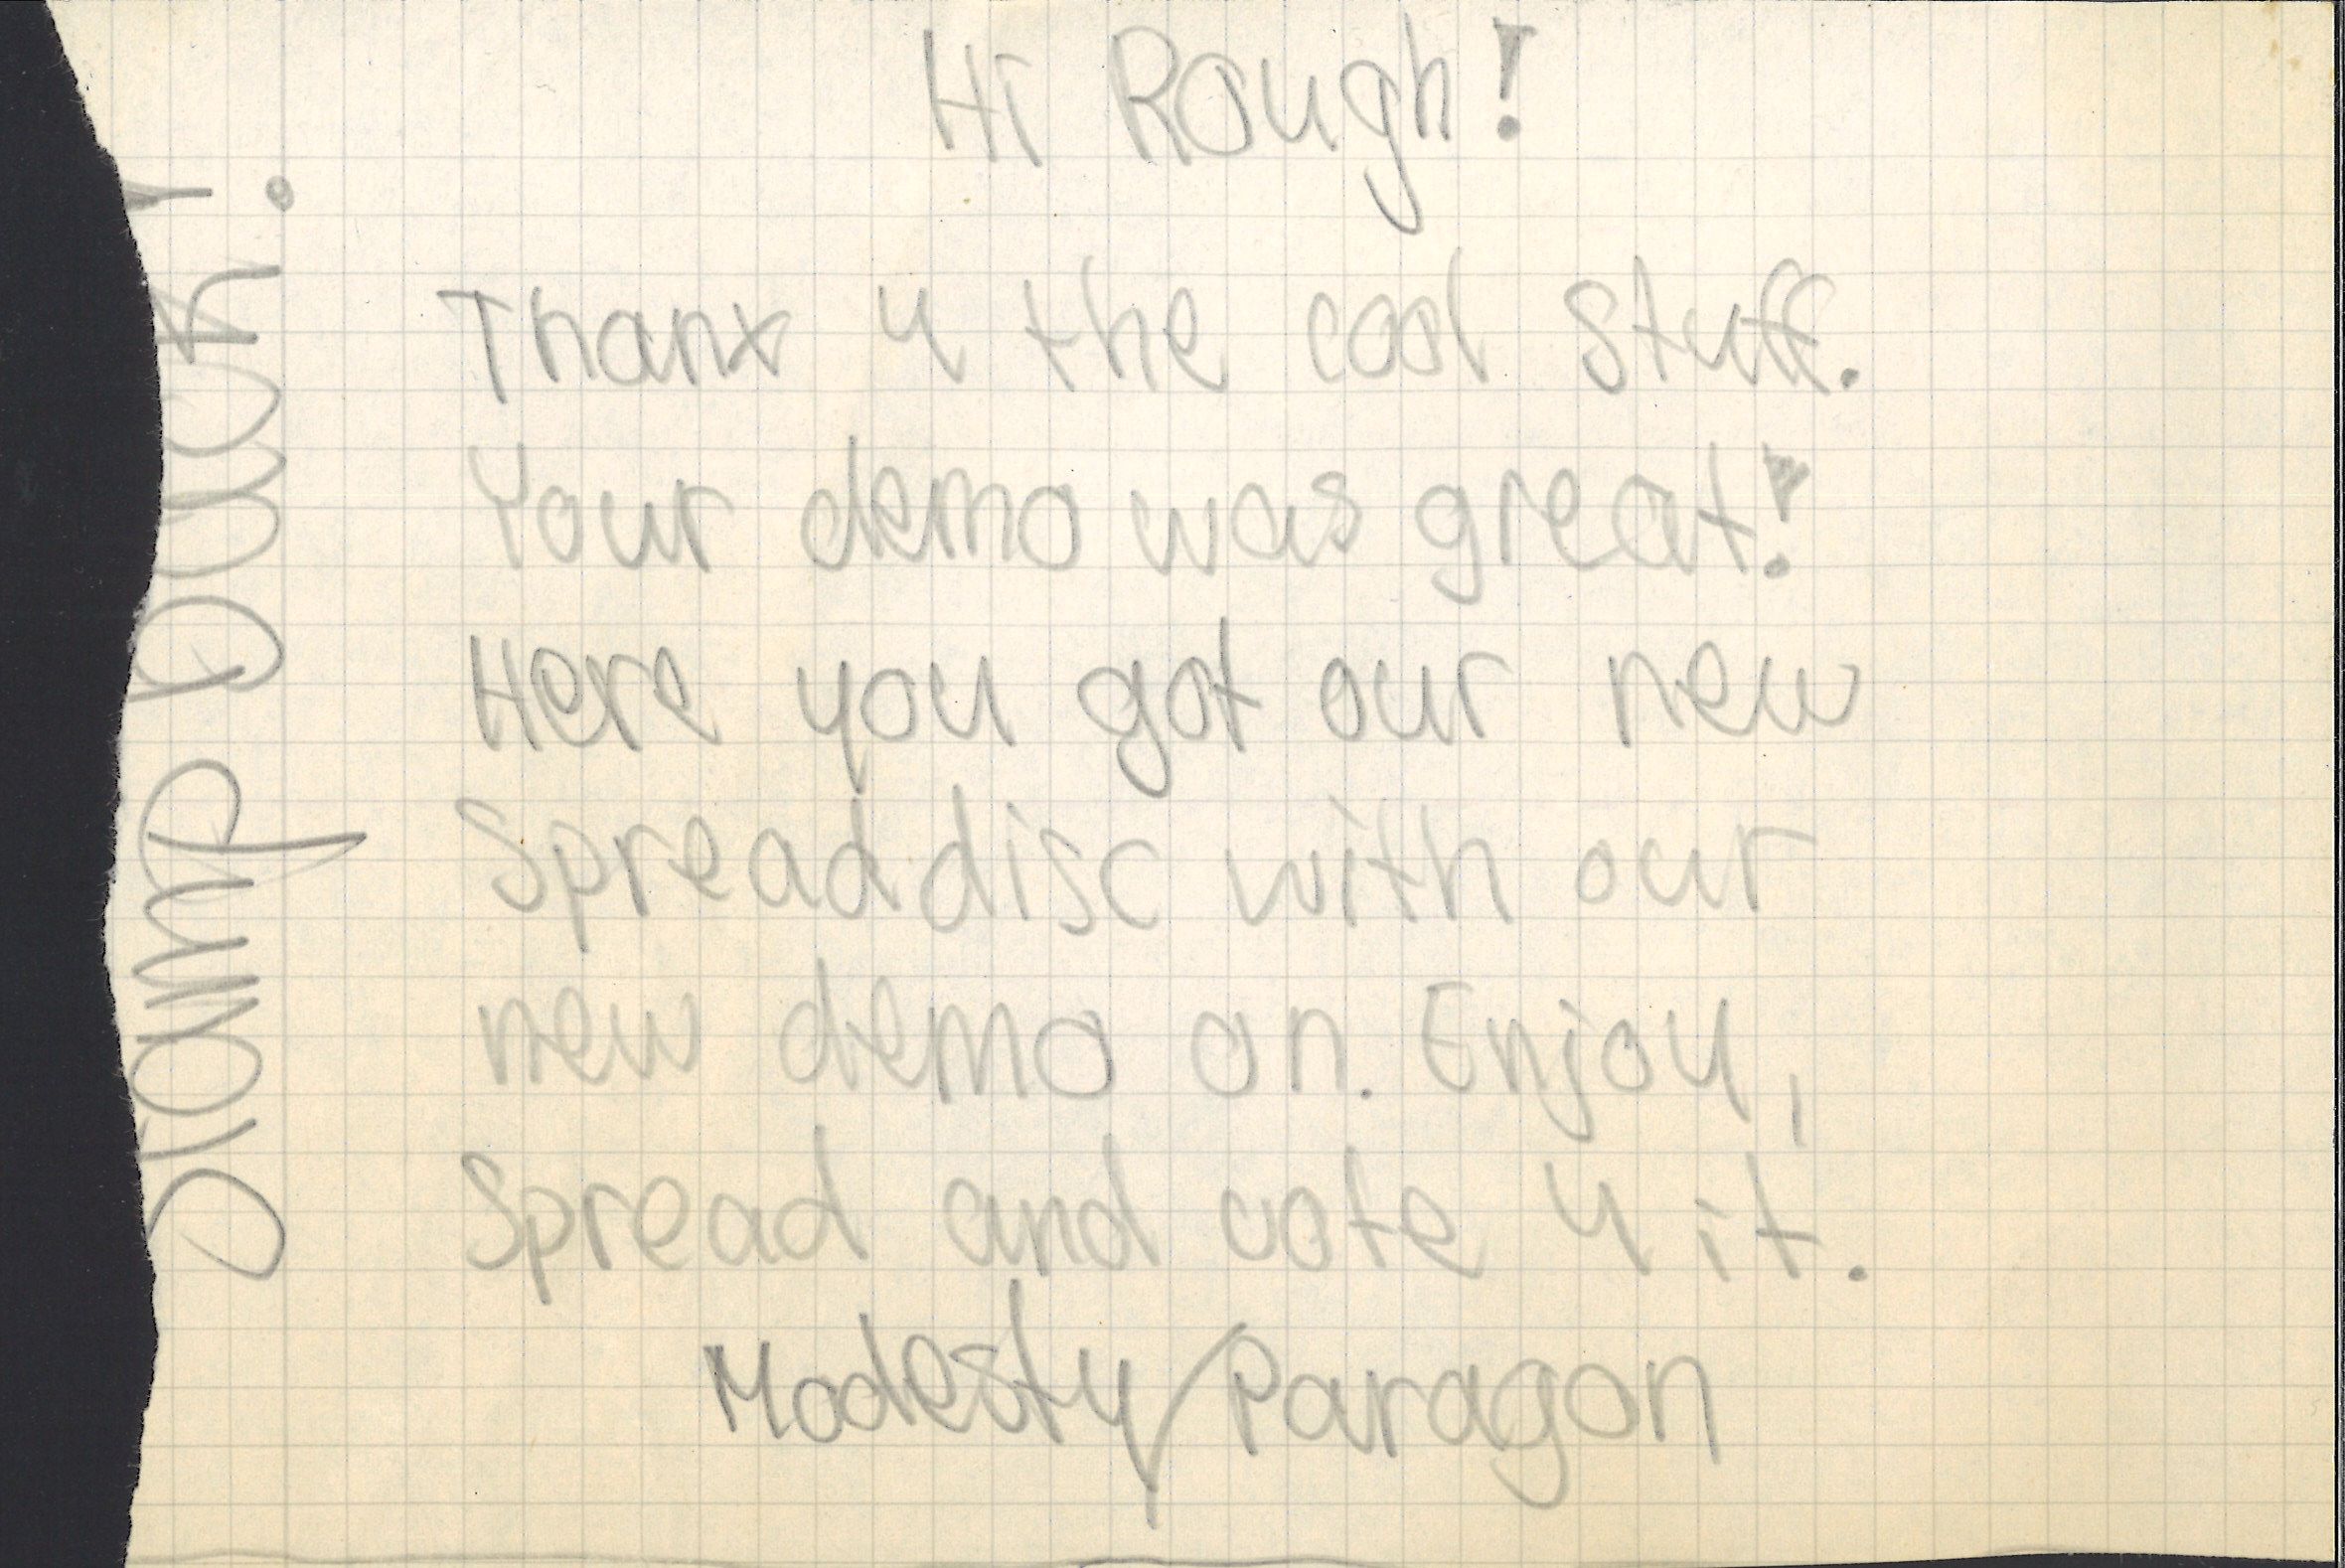 Hi Rough!
Thanx 4 the cool stuff.
Your demo was great!
Here you got our new
Spreaddisc with our
new demo on. Enjoy,
Spread and vote 4 it.
Modesty/Paragon
Stamp back!